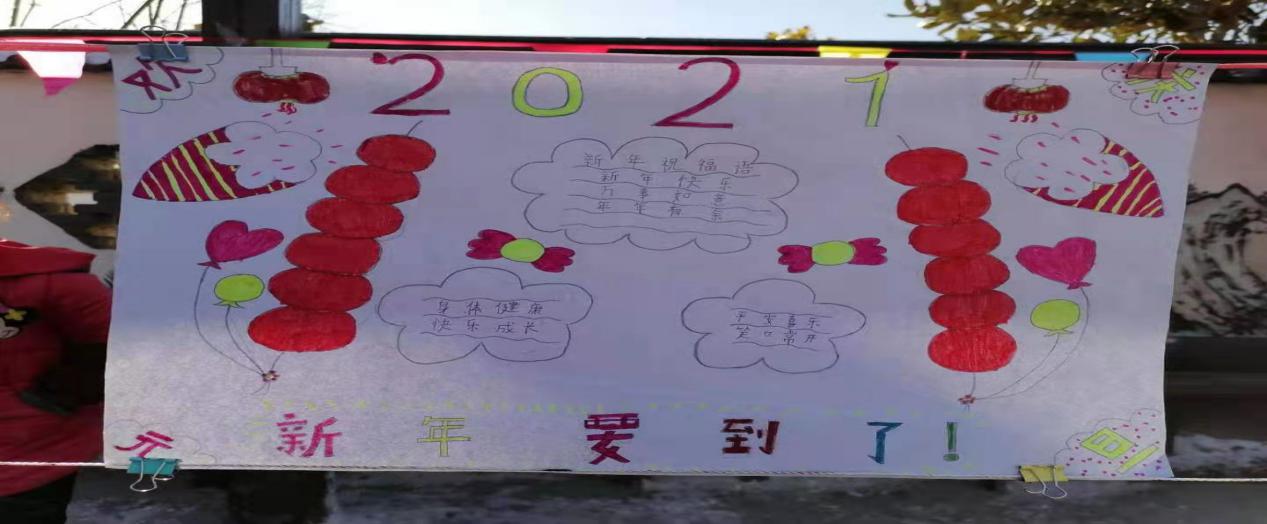 欢
2021
乐
新年祝福语
新年快乐
万事如意
年年有余
身体健康
快乐成长
平安喜乐
笑口常开
元
新年要到了!
旦